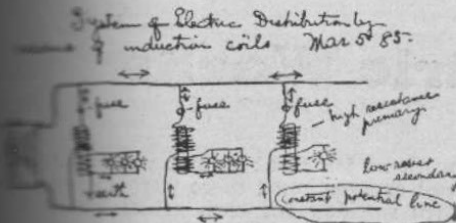 System of Electric Distribution by
of induction coils Mar 5 85.
fuse fuse fuse
high resistance
primary
Low resist
secondary
earth
constant potential line